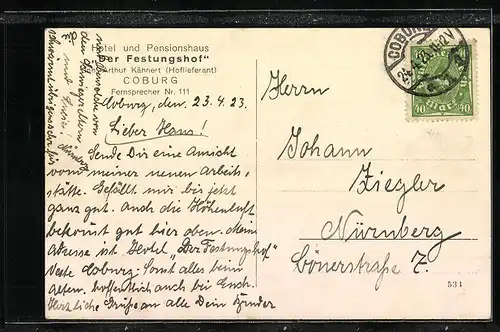 Hotel und Pensionshaus
"Der Festungshof"
Arthur Kännert (Hoflieferant)
COBURG
Fernsprecher Nr. 111
Coburg, den 23.4.23.
Lieber Hans!
Sende Dir eine Ansicht
von meiner neuen Arbeits-
stätte. Gefällt mir bis jetzt
ganz gut. Auch die Höhenluft
bekommt gut hier oben. Mein
Adresse ist Hotel „Der Festungshof"
Veste Coburg. Sonst alles beim
alten. Hoffentlich auch bei Euch.
Herzliche Grüße an alle Dein
COBURG
24.4.23.11-12V
40 40
Herrn
Johann
Ziegler
Nürnberg
7.
534